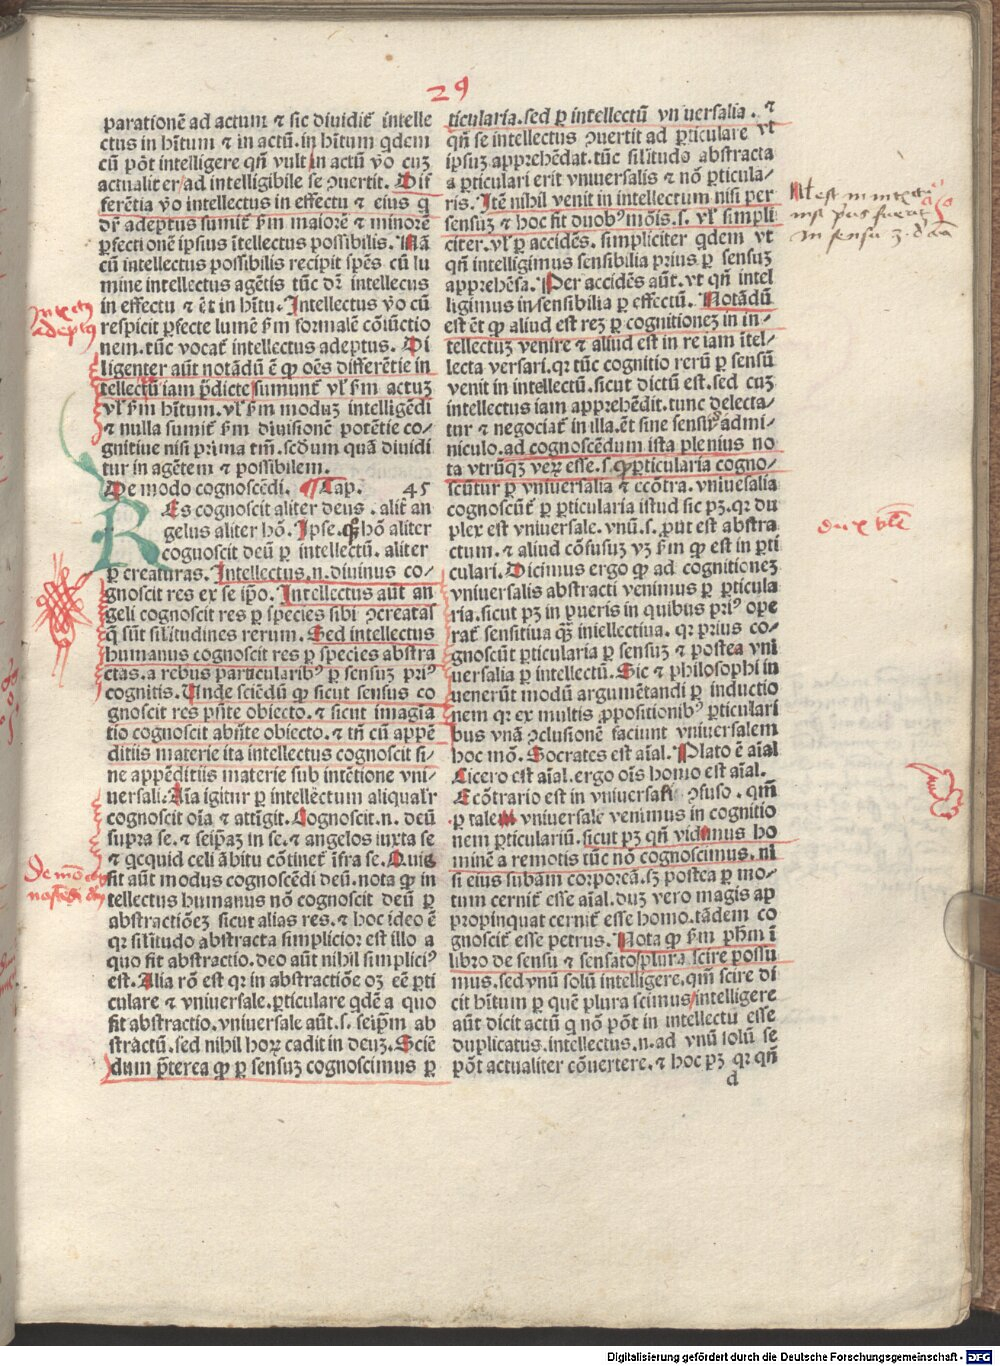 29
parationē ad actum ⁊ sic diuidit᷑ intelle
ctus in hītum ⁊ in actū. in hītum qdem
cū pōt intelligere qn̄ vult in actū v̄o cuꝫ
actualiter/ad intelligibile se ꝯuertit. Dif
ferētia v̄o intellectus in effectu ⁊ eius q
dr̄ adeptus sumit᷑ ẜm maiorē ⁊ minorē
ꝑfectionē ipsius ītellectus possibilis. Nā
cū intellectus possibilis recipit sp̄es cū lu
mine intellectus agētis tūc dr̄ intellecus
in effectu ⁊ ēt in hītu. Intellectus v̄o cū
respicit ꝑfecte lumē ẜm formalē cōiūctio
nem. tūc vocat᷑ intellectus adeptus. Di
ligenter aūt notādū ē ꝙ oēs differētie in
tellectū iam p̄dicte sumunt᷑ vl̓ ẜm actuꝫ
vl̓ ẜm hītum. vl̓ ẜm moduꝫ intelligēdi
⁊ nulla sumit᷑ ẜm diuisionē potētie co/
gnitiue nisi prima tm̄. scd̓um quā diuidi
tur in agētem ⁊ possibilem.
De modo cognoscēdi. ¶ Cap. 45
Res cognoscit aliter deus. alit᷑ an
gelus aliter hō. Ipse. qꝫ hō aliter
cognoscit deū ꝑ intellectū. aliter
ꝑ creaturas. Intellectus.n. diuinus co/
gnoscit res ex se ip̄o. Intellectus aūt an
geli cognoscit res ꝑ species sibi ꝯcreatas
q̄ sūt sil̓itudines rerum. Sed intellectus
humanus cognoscit res ꝑ species abstra
ctas. a rebus particularibꝰ ꝑ sensuꝫ priꝰ
cognitis. Unde sciēdū ꝙ sicut sensus co
gnoscit res pn̄te obiecto. ⁊ sicut imagīa
tio cognoscit abn̄te obiecto. ⁊ tn̄ cū appē
ditiis materie ita intellectus cognoscit si/
ne appēditiis materie sub intētione vni/
uersali. Aīa igitur ꝑ intellectum aliqual̓r
cognoscit oīa ⁊ attīgit. Cognoscit.n. deū
supra se. ⁊ seip̄aꝫ in se. ⁊ angelos iuxta se
⁊ qcquid celi ābitu cōtinet᷑ īfra se. Quis
sit aūt modus cognoscēdi deū. nota ꝙ in
tellectus humanus nō cognoscit deū ꝑ
abstractiōeꝫ sicut alias res. ⁊ hoc ideo ē
qr sil̓itudo abstracta simplicior est illo a
quo fit abstractio. deo aūt nihil simpliciꝰ
est. Alia rō est qr in abstractiōe oꝫ eē ꝑti
culare ⁊ vniuersale. ꝑticulare qdē a quo
fit abstractio. vniuersale aūt. s. seip̄m ab
stractū. sed nihil hoꝝ cadit in deuꝫ. Sciē
dum p̄terea ꝙ ꝑ sensuꝫ cognoscimus ꝑ
ticularia. sed ꝑ intellectū vniuersalia. ⁊
qn̄ se intellectus ꝯuertit ad ꝑticulare vt
ipsuꝫ apprehēdat. tūc sil̓itudo abstracta
a ꝑticulari erit vniuersalis ⁊ nō ꝑticula/
ris. Itē nihil venit in intellectum nisi per
sensuꝫ ⁊ hoc fit duobꝰ mōis. s. vl̓ simpli
citer. vl̓ ꝑ accidēs. simpliciter qdem vt
qn̄ intelligimus sensibilia prius ꝑ sensuꝫ
apprehēsa. Per accidēs aūt. vt qn̄ intel
ligimus insensibilia ꝑ effectū. Notādū
est ēt ꝙ aliud est reꝫ ꝑ cognitioneꝫ in in/
tellectuꝫ venire ⁊ aliud est in re iam ītel/
lecta versari. qr tūc cognitio rerū ꝑ sensū
venit in intellectū. sicut dictū est. sed cuꝫ
intellectus iam apprehēdit. tunc delecta/
tur ⁊ negociat᷑ in illa. ēt sine sensus admi/
niculo. ad cognoscēdum ista plenius no
ta vtrūqꝫ veꝝ esse. s. ꝙ ꝑticularia cogno/
scūtur ꝑ vniuersalia ⁊ ecōtra. vniuesalia
cognoscūt᷑ ꝑ ꝑticularia istud sic pꝫ. qr du
plex est vniuersale. vnū. s. ꝓut est abstra
ctum. ⁊ aliud cōfusuꝫ vꝫ ẜm ꝙ est in ꝑti
culari. Dicimus ergo ꝙ ad cognitioneꝫ
vniuersalis abstracti venimus ꝑ ꝑticula
ria. sicut pꝫ in pueris in quibus priꝰ ope
rat᷑ sensitiua qꝫ̄ intellectiua. qr prius co/
gnoscūt ꝑticularia ꝑ sensuꝫ ⁊ postea vni
uersalia ꝑ intellectū. Sic ⁊ philosophi in
uenerūt modū argumētandi ꝑ inductio
nem qr ex multis ꝓpositionibꝰ ꝑticulari
bus vnā ꝯclusionē faciunt vniuersalem
hoc mō. Socrates est aīal. Plato ē aīal
Cicero est aīal. ergo oīs homo est aīal.
Ecōtrario est in vniuersali ꝯfuso. qm̄
ꝑ talem vniuersale venimus in cognitio
nem ꝑticulariū. sicut pꝫ qn̄ videmus ho
minē a remotis tūc nō cognoscimus. ni
si eius sub̄am corporeā. sꝫ postea ꝑ mo/
tum cernit᷑ esse aīal. duꝫ vero magis ap
propinquat cernit᷑ esse homo. tādem co
gnoscit᷑ esse petrus. Nota ꝙ ẜm ph̄m ī
libro de sensu ⁊ sensato plura scire possu
mus. sed vnū solū intelligere. qm̄ scire di
cit hītum ꝑ quē plura scimus/intelligere
aūt dicit actū q nō pōt in intellectu esse
duplicatus. intellectus.n. ad vnū solū se
pōt actualiter cōuertere. ⁊ hoc pꝫ qr qn̄
d
Digitalisierung gefördert durch die Deutsche Forschungsgemeinschaft - DFG